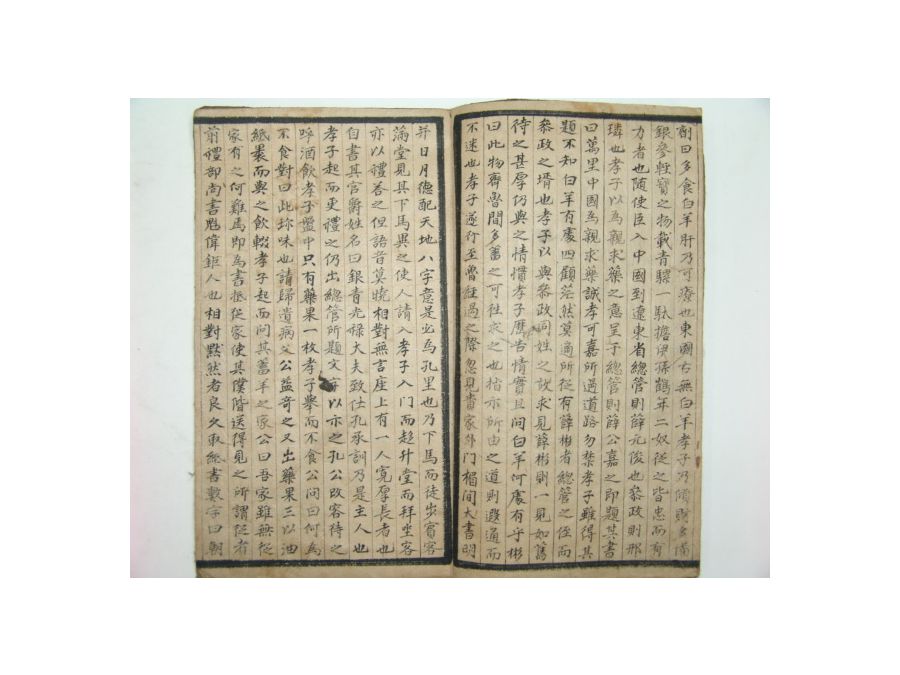 劑曰多食白羊肝乃可療也東國古無白羊孝子乃傾財多備
銀參輕寶之物載青騾一馱擔伊孫鶴年二奴從之皆忠而有
力者也随使臣入中國到遼東省總管則薛元俊也叅政則邢
璘也孝子以為親求藥之意呈于總管則薛公嘉之即題其書
曰萬里中國為親求藥誠孝可嘉所過道路勿禁孝子雖得其
題不知白羊有處四顧茫然莫適所從有薛彬者總管之侄而
叅政之壻也孝子以與叅政同姓之故求見薛彬則一見如舊
待之甚厚仍與之情慣孝子歷告情實且問白羊何處有乎彬
曰此物齊魯間多畜之可往求之也指示所由之道則遐通而
不迷也孝子遂行至魯經過之際忽見書家外门楣间大書明
并日月德配天地八字意是必為孔里也乃下馬而徒步賓客
滿堂見其下馬異之使人請入孝子入门而趍升堂而拜坐客
亦以禮荅之但語音莫曉相對無言座上有一人寬厚長者也
自書其官爵姓名曰銀青光祿大夫致仕孔承訓乃是主人也
孝子起而更禮之仍出總管所題文字以示之孔公改容待之
呼酒飲孝子盤中只有藥果一枚孝子擧而不食公问曰何為
不食對曰此珎味也請歸遺病父公益奇之又出藥果三以油
紙裹而與之飲輟孝子起而问其畜羊之家公曰吾家雖無從
家有之何難焉即為書抵從家使其僕陪送得見之所謂從者
前禮部尚書魁偉鉅人也相對默然者良久取紙書數字曰朝